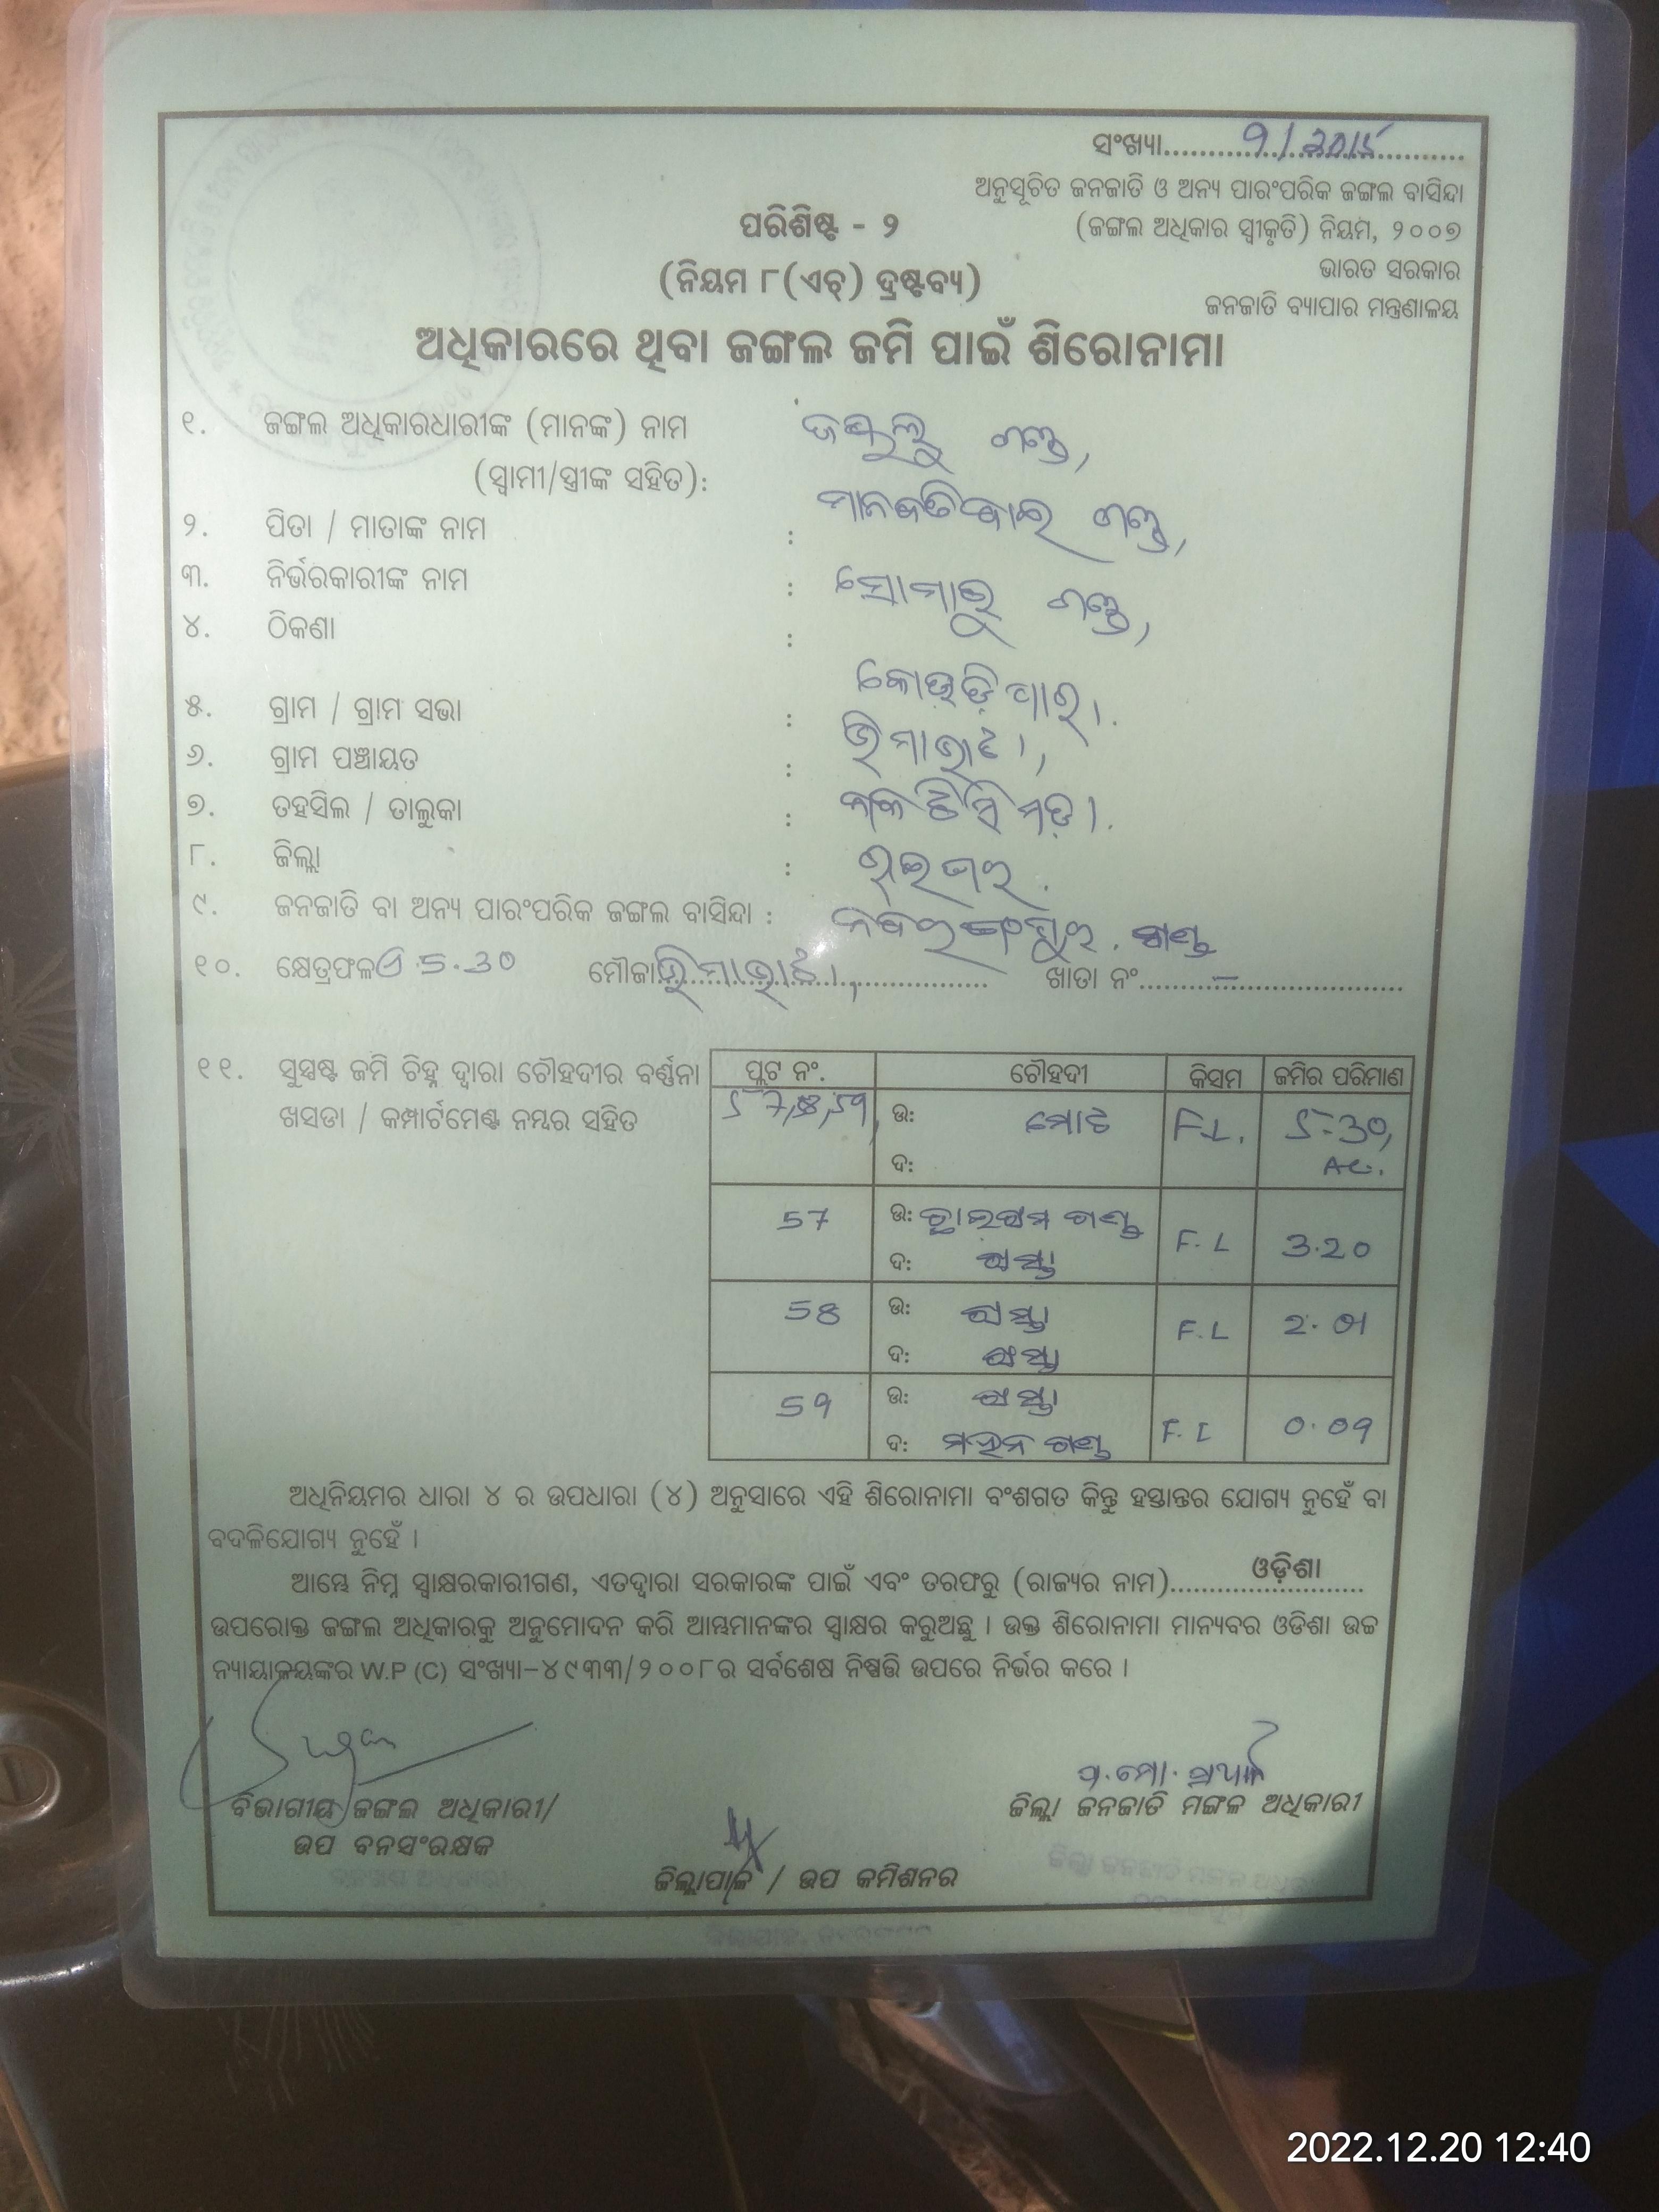 ସଂଖ୍ୟା.......9/2015.......
ଅନୁସୂଚିତ ଜନଜାତି ଓ ଅନ୍ୟ ପାରଂପରିକ ଜଙ୍ଗଲ ବାସିନ୍ଦା
ପରିଶିଷ୍ଟ - ୨
(ଜଙ୍ଗଲ ଅଧିକାର ସ୍ୱୀକୃତି) ନିୟମ, ୨୦୦୭
(ନିୟମ ୮(ଏଚ୍) ଦ୍ରଷ୍ଟବ୍ୟ)
ଭାରତ ସରକାର
ଜନଜାତି ବ୍ୟାପାର ମନ୍ତ୍ରଣାଳୟ
ଅଧିକାରରେ ଥିବା ଜଙ୍ଗଲ ଜମି ପାଇଁ ଶିରୋନାମା
୧. ଜଙ୍ଗଲ ଅଧିକାରଧାରୀଙ୍କ (ମାନଙ୍କ) ନାମ ଗଣ୍ଡ,
(ସ୍ୱାମୀ/ସ୍ତ୍ରୀଙ୍କ ସହିତ):
୨. ପିତା / ମାତାଙ୍କ ନାମ : ଗଣ୍ଡ,
୩. ନିର୍ଭରକାରୀଙ୍କ ନାମ : ସୋମାରୁ ଗଣ୍ଡ,
୪. ଠିକଣା :
୫. ଗ୍ରାମ / ଗ୍ରାମ ସଭା :
୬. ଗ୍ରାମ ପଞ୍ଚାୟତ :
୭. ତହସିଲ / ତାଲୁକା :
୮. ଜିଲ୍ଲା : ରାଇଘର.
୯. ଜନଜାତି ବା ଅନ୍ୟ ପାରଂପରିକ ଜଙ୍ଗଲ ବାସିନ୍ଦା : ନବରଙ୍ଗପୁର. ଗଣ୍ଡ
୧୦. କ୍ଷେତ୍ରଫଳ 5.30 ମୌଜା.............. ଖାତା ନଂ.......–.......
୧୧. ସୁସ୍ପଷ୍ଟ ଜମି ଚିହ୍ନ ଦ୍ୱାରା ଚୌହଦୀର ବର୍ଣ୍ଣନା
ଖସଡା / କମ୍ପାର୍ଟମେଣ୍ଟ ନମ୍ବର ସହିତ
ପ୍ଲଟ ନଂ. ଚୌହଦୀ କିସମ ଜମିର ପରିମାଣ
57,58,59, ଉ: ମୋଟ F.L. 5.30,
ଦ: AC.
57 ଉ: ଗଣ୍ଡ F.L 3.20
ଦ: ରାସ୍ତା
58 ଉ: ରାସ୍ତା F.L 2.01
ଦ: ରାସ୍ତା
59 ଉ: ରାସ୍ତା F.L 0.09
ଦ: ଗଣ୍ଡ
ଅଧିନିୟମର ଧାରା ୪ ର ଉପଧାରା (୪) ଅନୁସାରେ ଏହି ଶିରୋନାମା ବଂଶଗତ କିନ୍ତୁ ହସ୍ତାନ୍ତର ଯୋଗ୍ୟ ନୁହେଁ ବା
ବଦଳିଯୋଗ୍ୟ ନୁହେଁ ।
ଆମ୍ଭେ ନିମ୍ନ ସ୍ୱାକ୍ଷରକାରୀଗଣ, ଏତଦ୍ୱାରା ସରକାରଙ୍କ ପାଇଁ ଏବଂ ତରଫରୁ (ରାଜ୍ୟର ନାମ).......ଓଡ଼ିଶା.......
ଉପରୋକ୍ତ ଜଙ୍ଗଲ ଅଧିକାରକୁ ଅନୁମୋଦନ କରି ଆମ୍ଭମାନଙ୍କର ସ୍ୱାକ୍ଷର କରୁଅଛୁ । ଉକ୍ତ ଶିରୋନାମା ମାନ୍ୟବର ଓଡିଶା ଉଚ୍ଚ
ନ୍ୟାୟାଳୟଙ୍କର W.P (C) ସଂଖ୍ୟା-୪୯୩୩/୨୦୦୮ର ସର୍ବଶେଷ ନିଷ୍ପତ୍ତି ଉପରେ ନିର୍ଭର କରେ ।
ବିଭାଗୀୟ ଜଙ୍ଗଲ ଅଧିକାରୀ/
ଉପ ବନସଂରକ୍ଷକ
ଜିଲ୍ଲା ଜନଜାତି ମଙ୍ଗଳ ଅଧିକାରୀ
ଜିଲ୍ଲାପାଳ / ଉପ କମିଶନର
2022.12.20 12:40